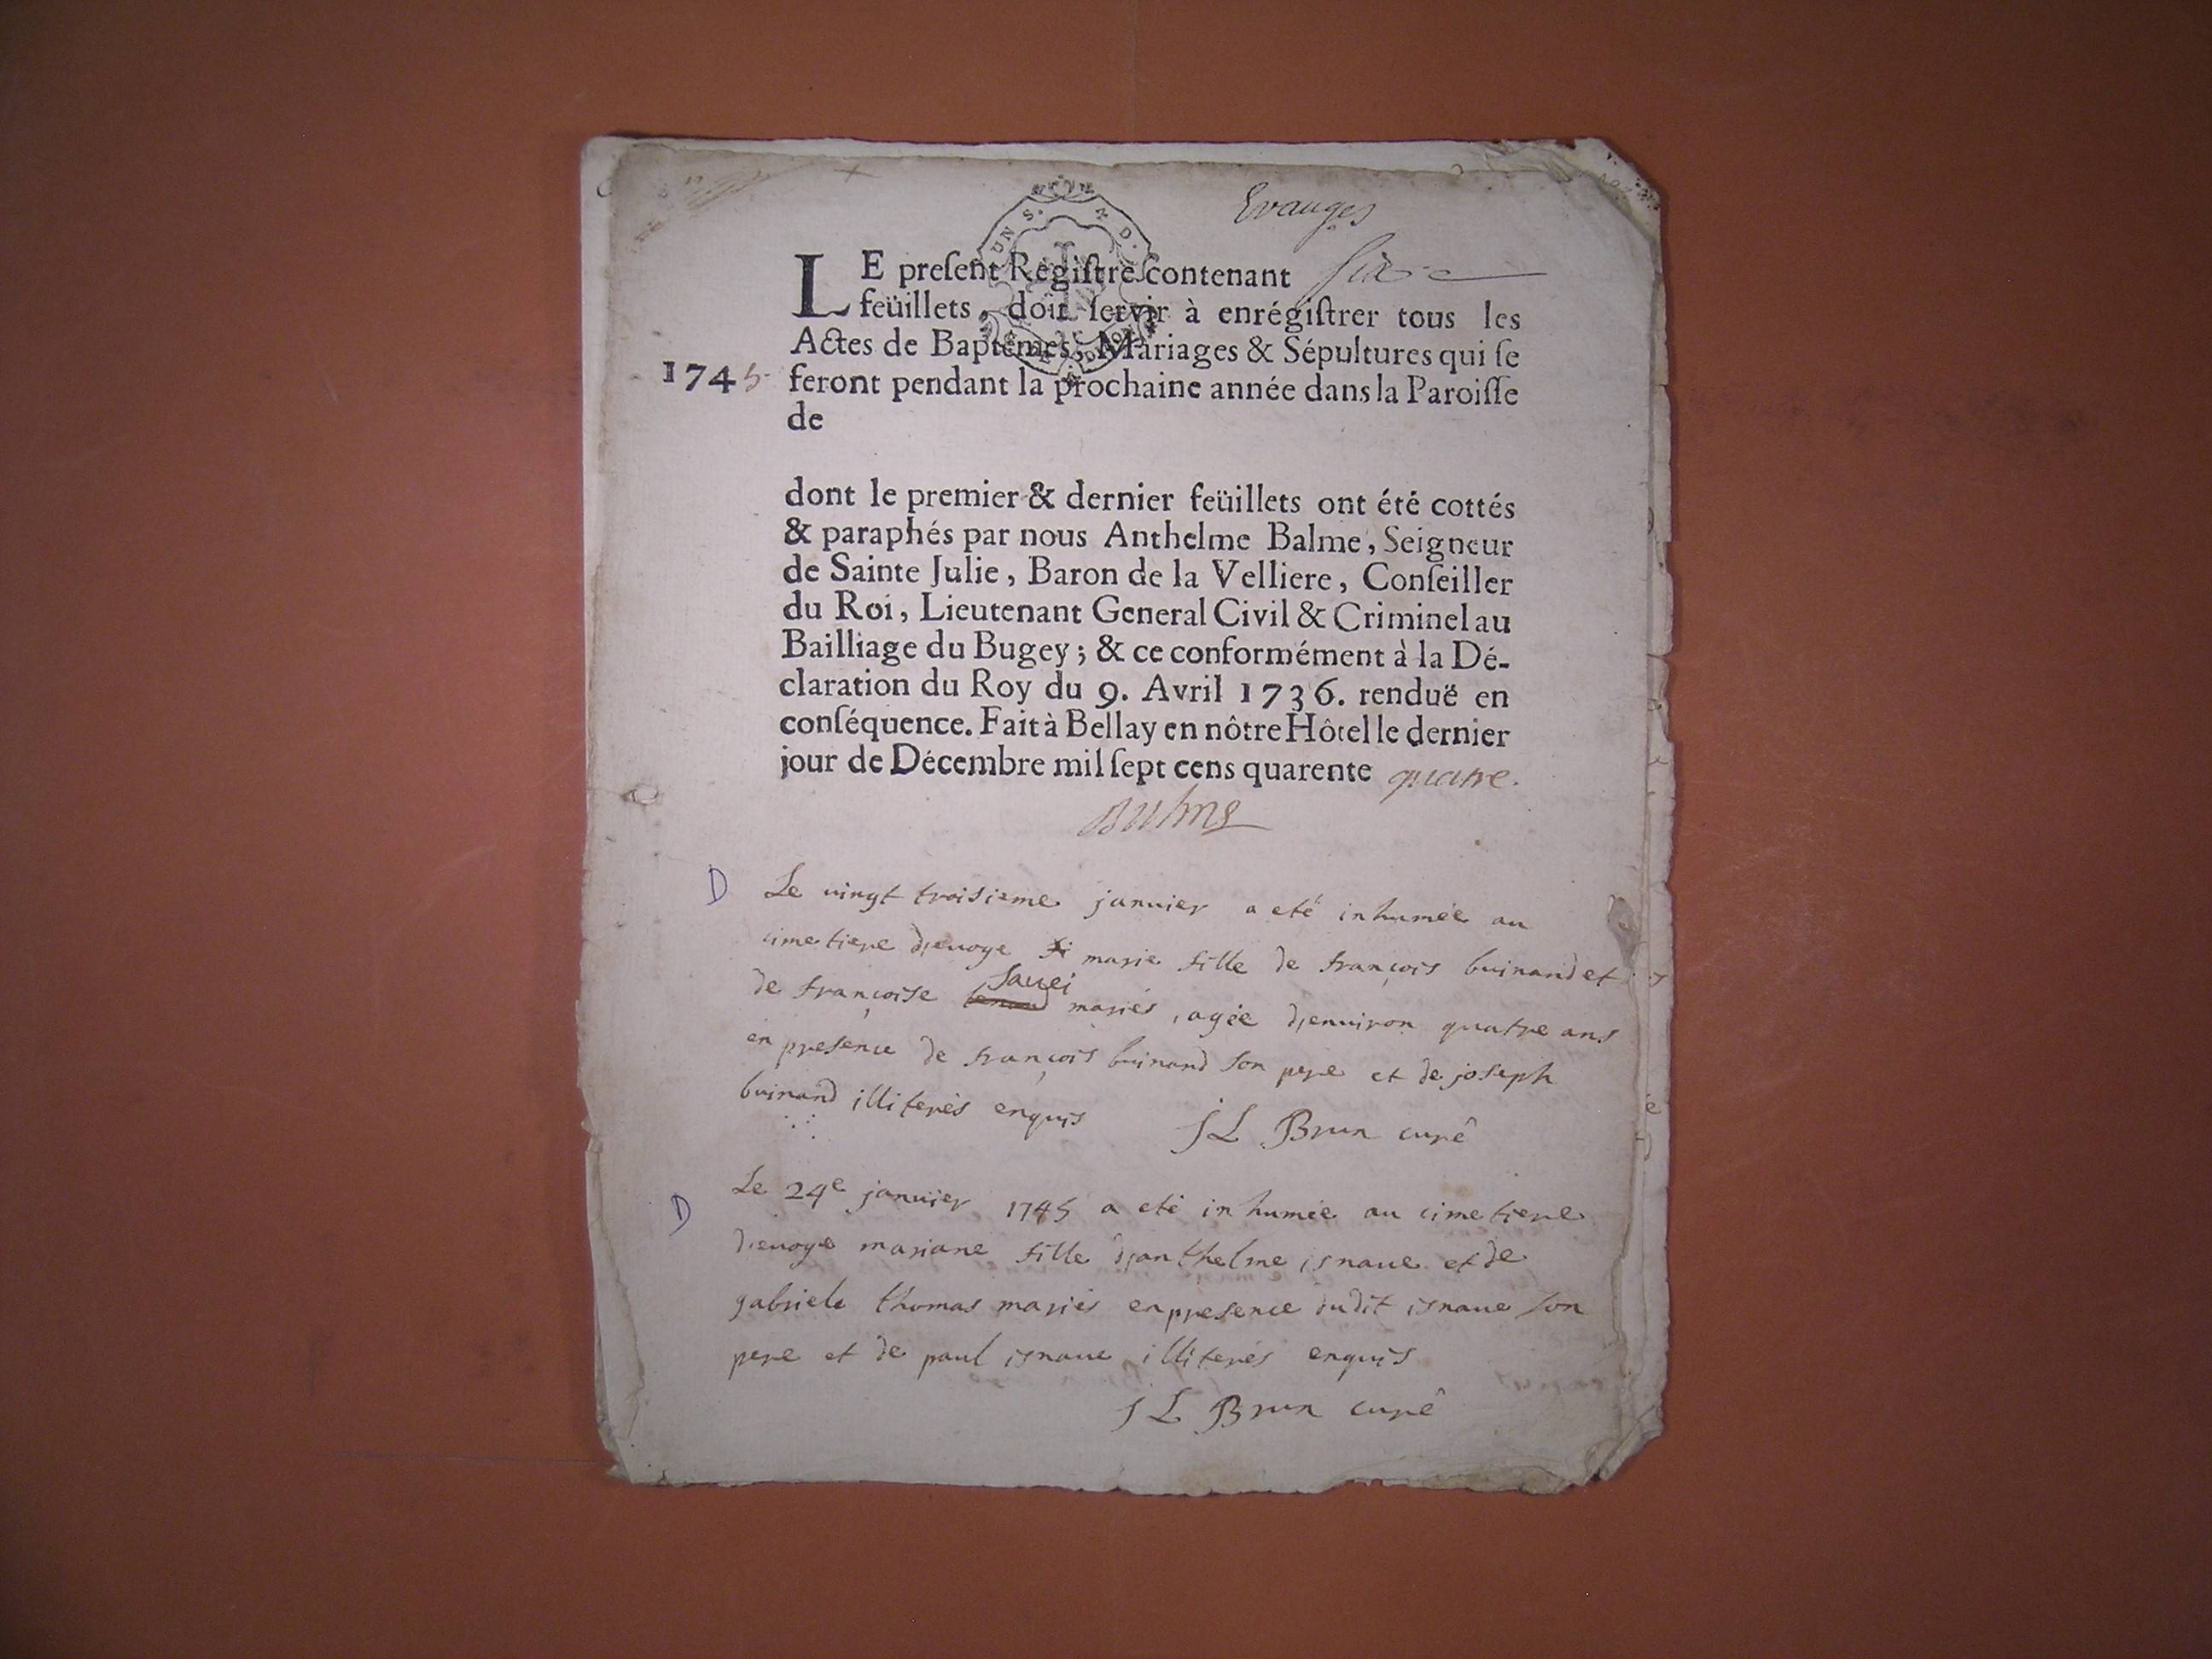 Evauges
LE preſent Regiſtre contenant six
feüillets, doit ſervir à enrégiſtrer tous les
Actes de Baptêmes, Mariages & Sépultures qui ſe
1745 feront pendant la prochaine année dans la Paroiſſe
de
dont le premier & dernier feüillets ont été cottés
& paraphés par nous Anthelme Balme, Seigneur
de Sainte Julie, Baron de la Velliere, Conſeiller
du Roi, Lieutenant General Civil & Criminel au
Bailliage du Bugey; & ce conformément à la Dé-
claration du Roy du 9. Avril 1736. renduë en
conſéquence. Fait à Bellay en nôtre Hôtel le dernier
jour de Décembre mil ſept cens quarente quatre.
Balme
D Le vingt troisieme janvier a eté inhumée au
cimetiere d'evoge marie fille de françois buinand et
de françoise Savei mariés, agée d'environ quatre ans
en presence de françois buinand son pere et de joseph
buinand illiterés enquis J L Brun curé
D Le 24e janvier 1745 a eté inhumée au cimetiere
d'evoge mariane fille d'anthelme isnave et de
gabriele thomas mariés en presence dudit isnave son
pere et de paul isnave illiterés enquis
J L Brun curé